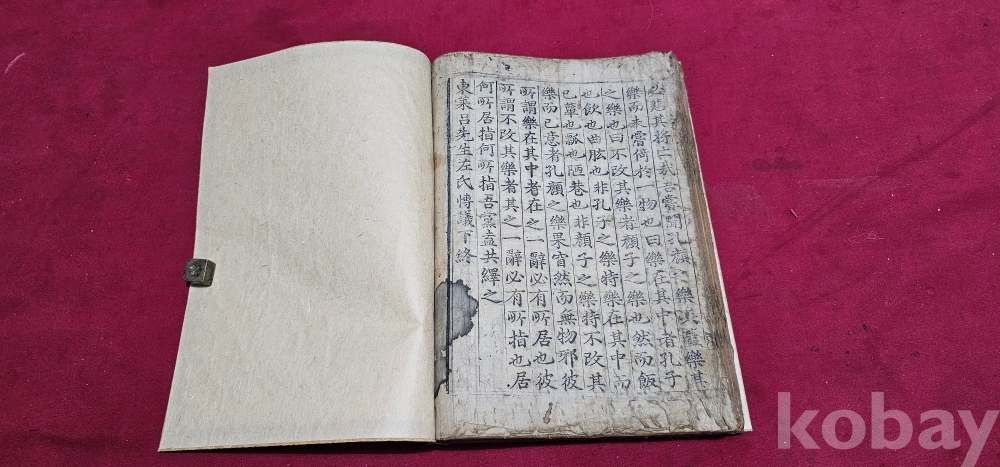 其將亡哉吾嘗聞孔顏之樂其樂其
樂而未嘗倚於一物也曰樂在其中者孔子
之樂也曰不改其樂者顏子之樂也然而飯
也飲也曲肱也非孔子之樂特樂在其中而
已簞也瓢也陋巷也非顏子之樂特不改其
樂而已意者孔顏之樂果窅然而無物邪彼
所謂樂在其中者在之一辭必有所居也彼
所謂不改其樂者其之一辭必有所指也居
何所居指何所指吾黨盍共繹之
東萊呂先生左氏博議下終
kobay